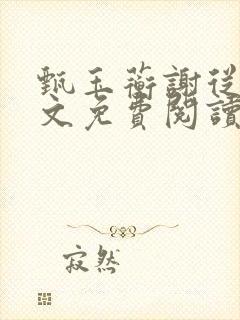 甄玉蘅謝從
文免費閱讀
寂然